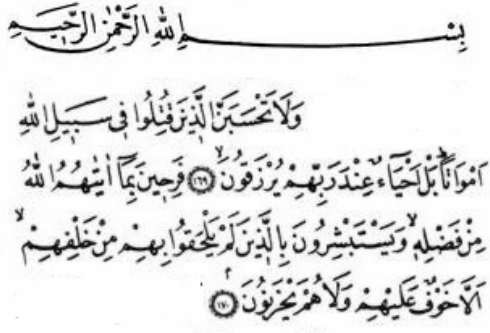 بِسْمِ اللهِ الرَّحْمٰنِ الرَّحِيمِ
وَلَا تَحْسَبَنَّ الَّذِينَ قُتِلُوا فِي سَبِيلِ اللهِ
اَمْوَاتًا بَلْ اَحْيَاءٌ عِنْدَ رَبِّهِمْ يُرْزَقُونَۙ ﴿١٦٩﴾ فَرِحِينَ بِمَا اٰتٰيهُمُ اللهُ
مِنْ فَضْلِهِۙ وَيَسْتَبْشِرُونَ بِالَّذِينَ لَمْ يَلْحَقُوا بِهِمْ مِنْ خَلْفِهِمْۙ
اَلَّا خَوْفٌ عَلَيْهِمْ وَلَا هُمْ يَحْزَنُونَۢ ﴿١٧٠﴾